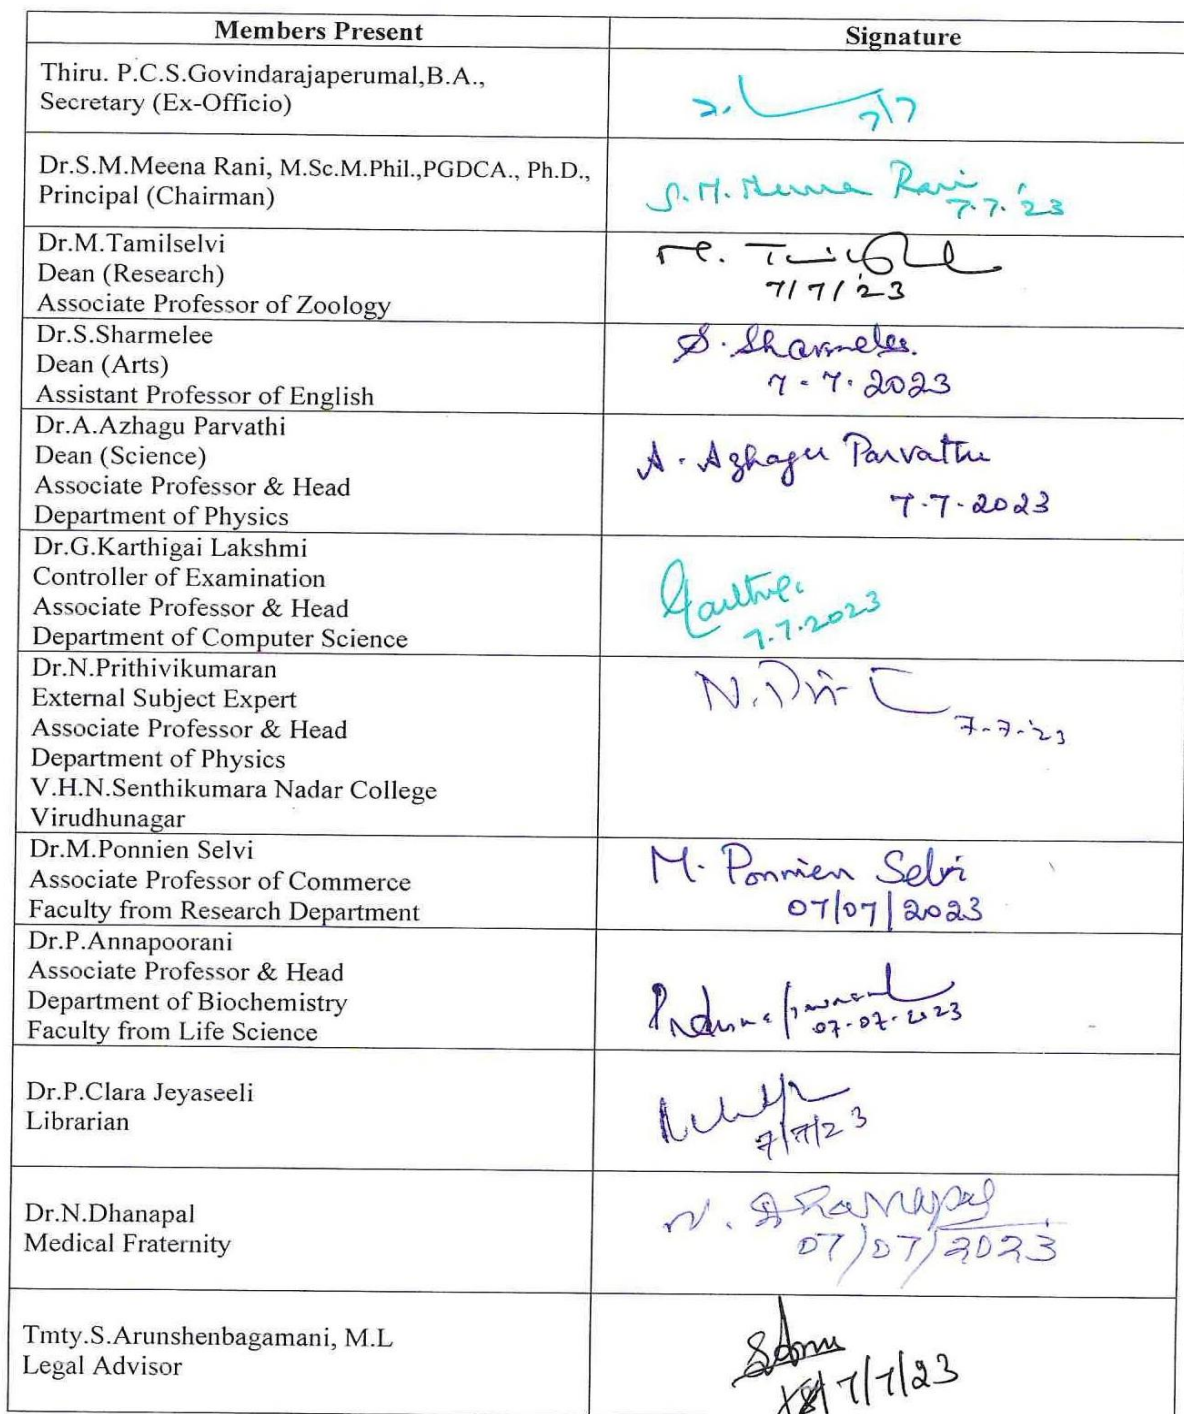 Members Present
Signature
Thiru. P.C.S.Govindarajaperumal,B.A.,
Secretary (Ex-Officio)
7/7
Dr.S.M.Meena Rani, M.Sc.M.Phil.,PGDCA., Ph.D.,
Principal (Chairman)
S.M. Meena Rani
7.7.'23
Dr.M.Tamilselvi
Dean (Research)
Associate Professor of Zoology
M.
7/7/'23
Dr.S.Sharmelee
Dean (Arts)
Assistant Professor of English
S. Sharmelee.
7.7.2023
Dr.A.Azhagu Parvathi
Dean (Science)
Associate Professor & Head
Department of Physics
A. Azhagu Parvathi
7.7.2023
Dr.G.Karthigai Lakshmi
Controller of Examination
Associate Professor & Head
Department of Computer Science
7.7.2023
Dr.N.Prithivikumaran
External Subject Expert
Associate Professor & Head
Department of Physics
V.H.N.Senthikumara Nadar College
Virudhunagar
N.
7-7-'23
Dr.M.Ponnien Selvi
Associate Professor of Commerce
Faculty from Research Department
M. Ponnien Selvi
07/07/2023
Dr.P.Annapoorani
Associate Professor & Head
Department of Biochemistry
Faculty from Life Science
07-07-2023
Dr.P.Clara Jeyaseeli
Librarian
7/7/23
Dr.N.Dhanapal
Medical Fraternity
N. Dhanapal
07/07/2023
Tmty.S.Arunshenbagamani, M.L
Legal Advisor
7/7/23